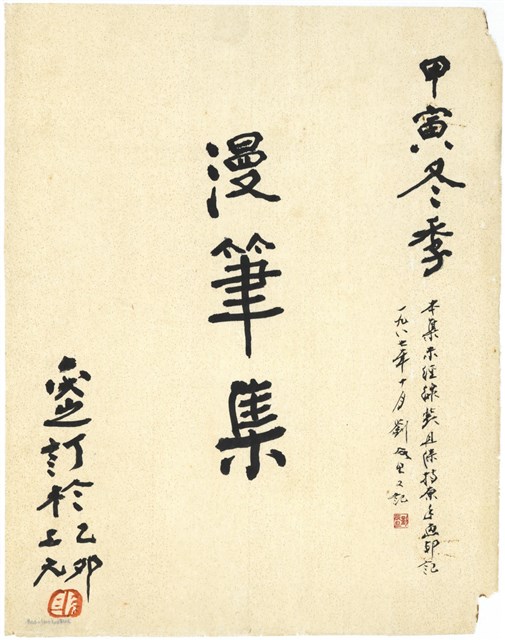 甲寅冬季
本集未經線裝且保持原
一九八七年十月劉
又記
漫筆集
訂於乙卯
上元